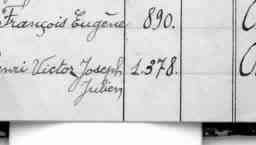 François Eugène 890.
enri Victor Joseph 1.378.
Julien